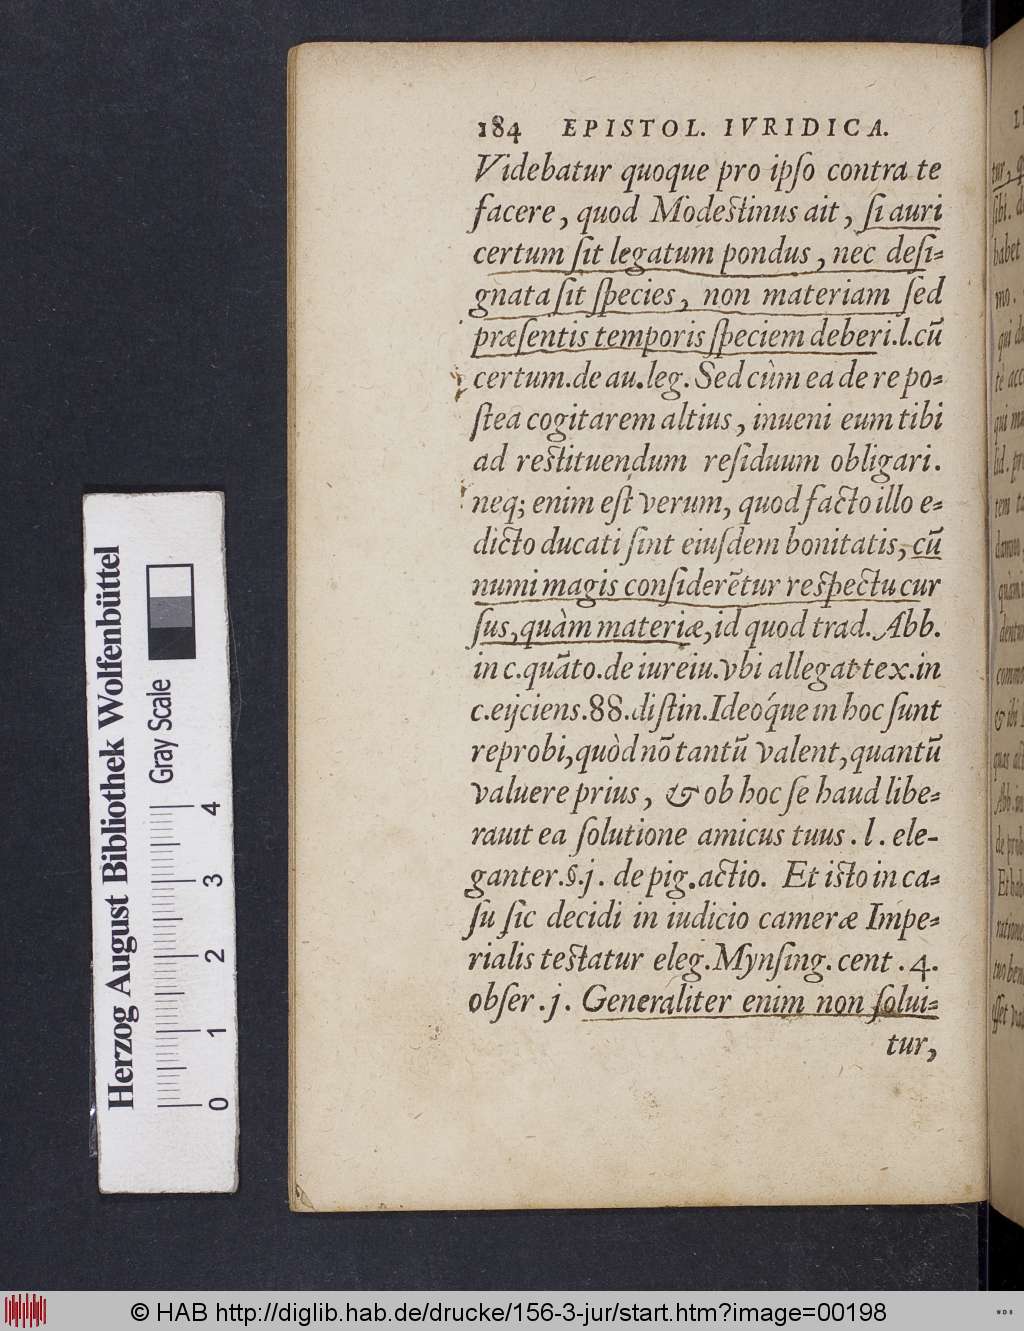 184 EPISTOL. IVRIDICA.
Videbatur quoque pro ipſo contra te
facere, quod Modestinus ait, ſi auri
certum ſit legatum pondus, nec deſi-
gnata ſit ſpecies, non materiam ſed
præſentis temporis ſpeciem deberi.l.cū
certum.de au.leg. Sed cùm ea de re po-
ſtea cogitarem altius, inueni eum tibi
ad restituendum reſiduum obligari.
neq; enim eſt verum, quod facto illo e-
dicto ducati ſint eiuſdem bonitatis, cū
numi magis conſiderētur respectu cur
ſus, quàm materiæ, id quod trad. Abb.
in c.quāto.de iureiu.vbi allegat tex.in
c.eijciens.88.diſtin.Ideóque in hoc ſunt
reprobi, quòd nō tantū valent, quantū
valuere prius, & ob hoc ſe haud libe-
rauit ea ſolutione amicus tuus. l. ele-
ganter.§.j. de pig.actio. Et iſto in ca-
ſu ſic decidi in iudicio cameræ Impe-
rialis testatur eleg.Mynſing.cent.4.
obſer.j. Generaliter enim non ſolui-
tur,
Herzog August Bibliothek Wolfenbüttel
Gray Scale
0 1 2 3 4
© HAB http://diglib.hab.de/drucke/156-3-jur/start.htm?image=00198